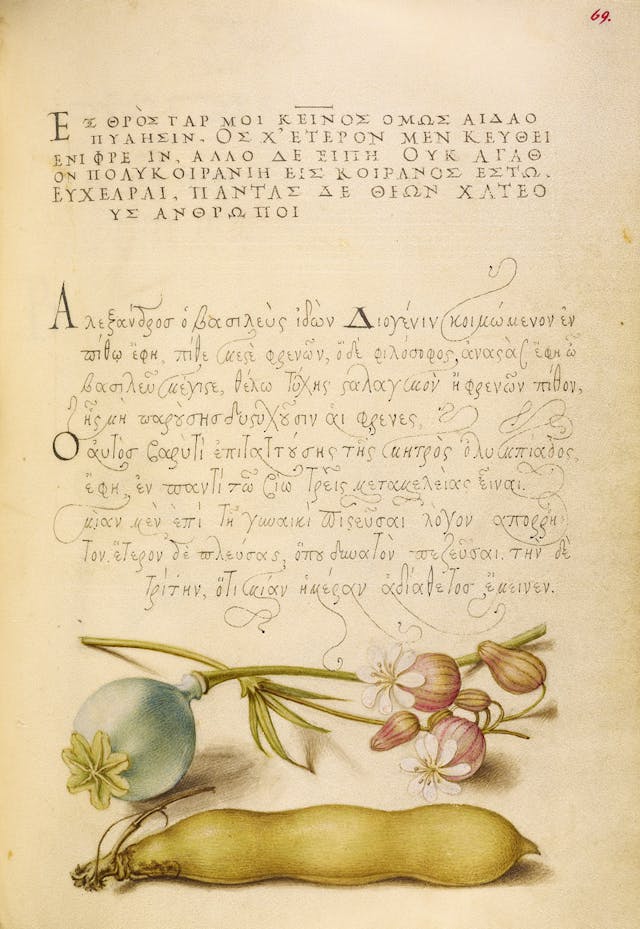 69.
ΕΧΘΡῸΣ ΓΑΡ ΜΟΙ ΚΕΙΝΟΣ ΟΜΩΣ ΑΙΔΑΟ
ΠΥΛΗΣΙΝ. ΟΣ Χ' ΕΤΕΡΟΝ ΜΕΝ ΚΕΥΘΕΙ
ΕΝΙ ΦΡΕ ΙΝ, ΑΛΛΟ ΔΕ ΕΙΠΗ ΟΥΚ ΑΓΑΘ
ΟΝ ΠΟΛΥΚΟΙΡΑΝΙΗ ΕΙΣ ΚΟΙΡΑΝΟΣ ΕΣΤΩ.
ΠΑΝΤΑΣ ΔΕ ΘΕΩΝ ΧΑΤΕΟ
ΥΣ ΑΝΘΡΩΠΟΙ
Αλεξανδρος ὁ βασιλεὺς ἰδὼν Διογένιν κοιμώμενον ἐν
πίθω ἔφη, πίθε μεϛὲ φρενῶν, ὁ δὲ φιλόσοφος, ἀναϛὰς ἔφη ὦ
βασιλεῦ μέγιϛε, θέλω τύχης ϛαλαγμὸν ἢ φρενῶν πίθον,
ἧς μὴ παρύσης δυϛυχοῦσιν αἱ φρενες,
Ὁ αὐτὸς ἐπιταττύσης τῆς μητρὸς ὀλυμπιάδος,
ἔφη, ἐν παντὶ τῶ βίω τρεῖς μεταμελείας εἶναι.
μίαν μὲν ἐπὶ τῆ γυναικὶ πιϛεῦσαι λόγον απορρη
τον. ἕτερον δὲ πλεύσας, ὅπου δυνατὸν πεζεῦσαι. την δὲ
τρίτην, ὅτι μίαν ἡμέραν ἀδιάθετος ἔμεινεν.